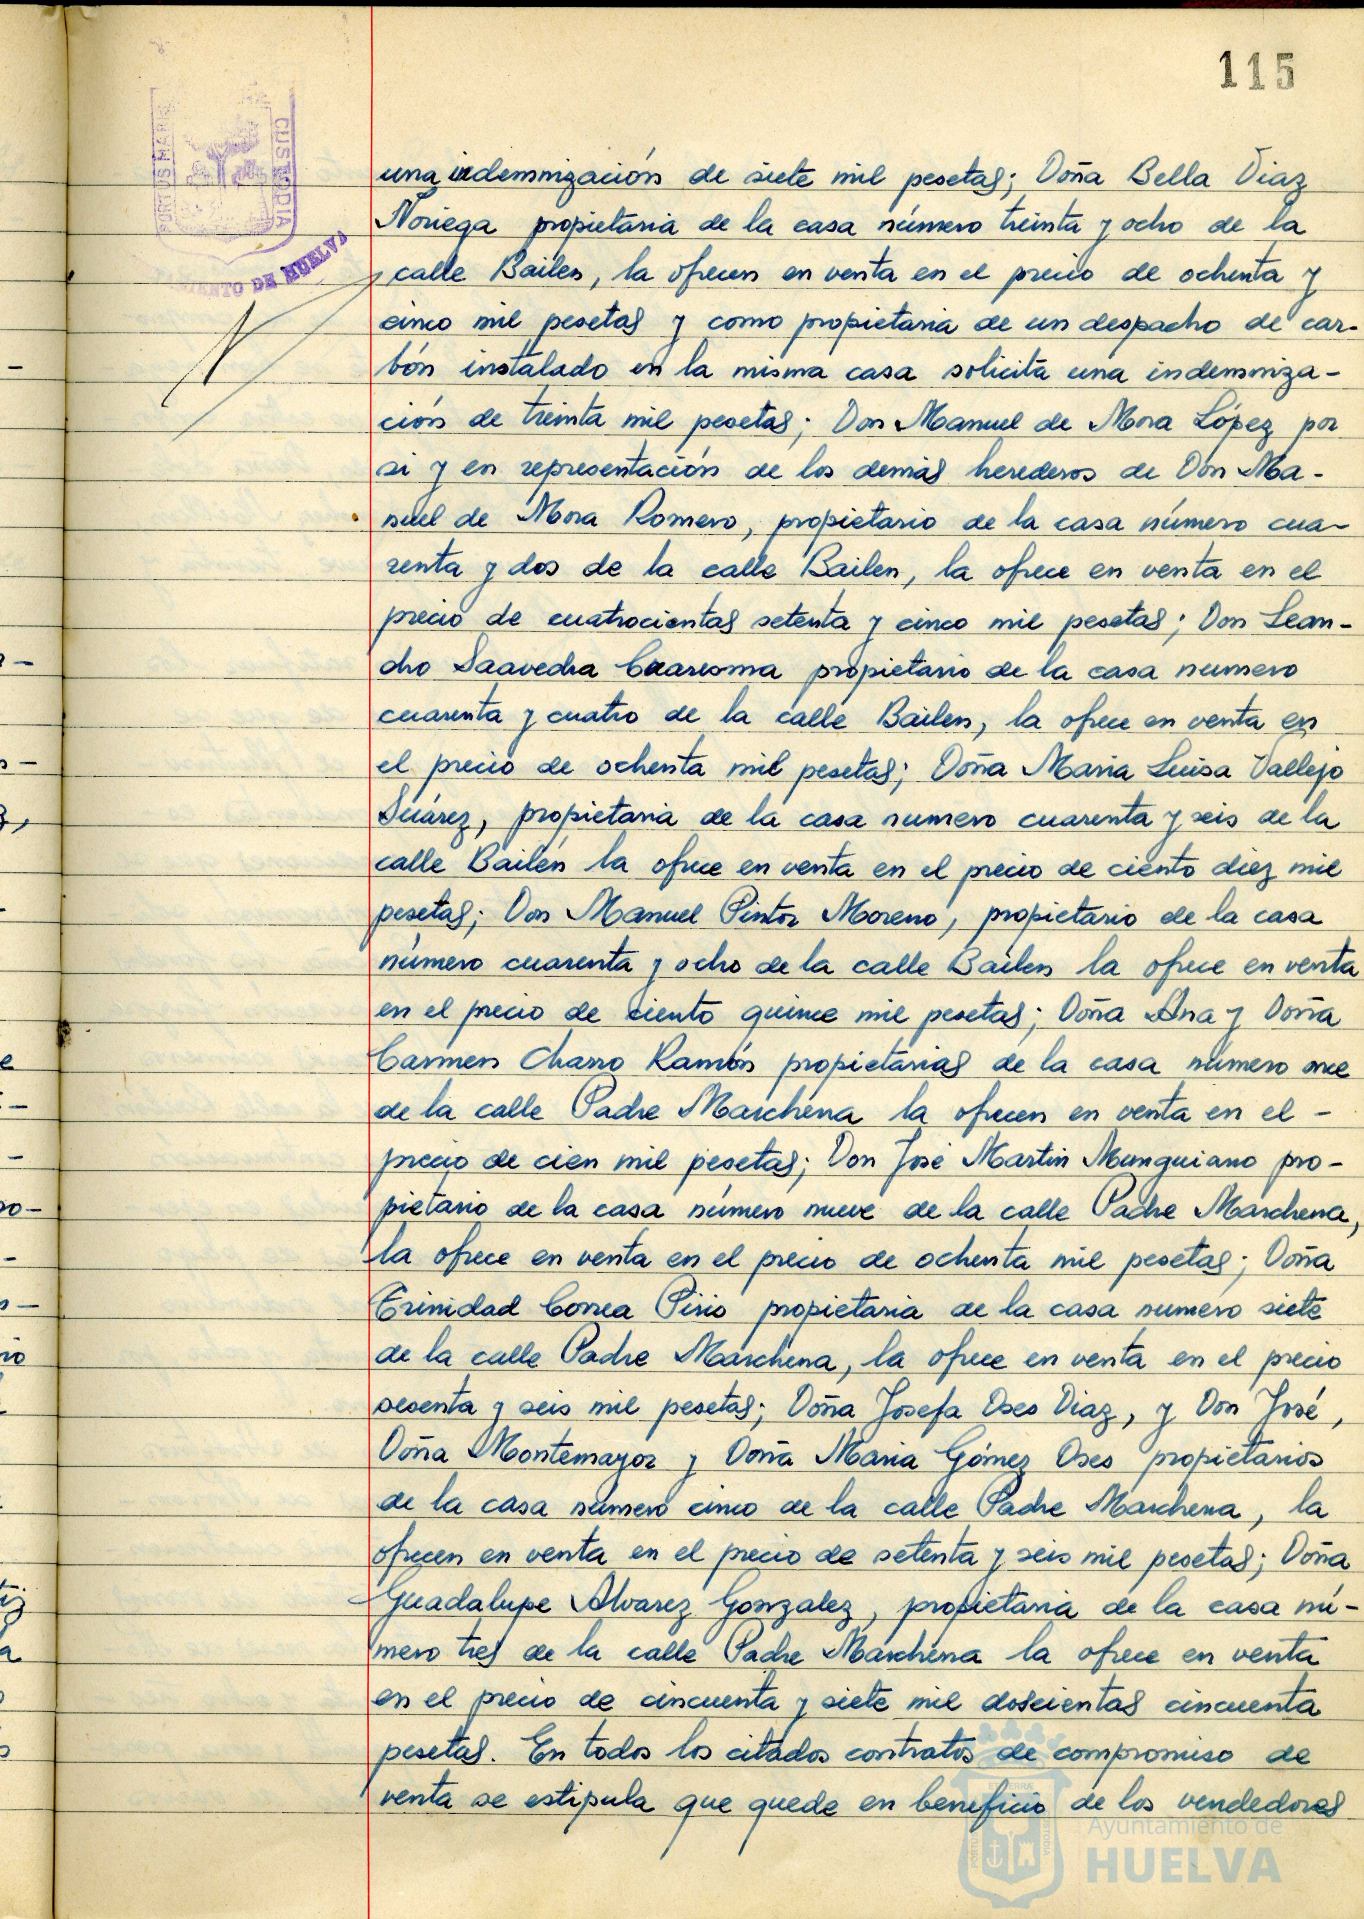 115
PORTUS MARIS
CUSTODIA
MIENTO DE HUELVA
una indemnización de siete mil pesetas; Doña Bella Diaz
Noriega propietaria de la casa número treinta y ocho de la
calle Bailen, la ofrecen en venta en el precio de ochenta y
cinco mil pesetas y como propietaria de un despacho de car-
bón instalado en la misma casa solicita una indemniza-
ción de treinta mil pesetas; Don Manuel de Mora López por
si y en representación de los demás herederos de Don Ma-
nuel de Mora Romero, propietario de la casa número cua-
renta y dos de la calle Bailen, la ofrece en venta en el
precio de cuatrocientas setenta y cinco mil pesetas; Don Lean-
dro Saavedra Cuaresma propietario de la casa numero
cuarenta y cuatro de la calle Bailen, la ofrece en venta en
el precio de ochenta mil pesetas; Doña Maria Luisa Vallejo
Suárez, propietaria de la casa numero cuarenta y seis de la
calle Bailén la ofrece en venta en el precio de ciento diez mil
pesetas; Don Manuel Pintor Moreno, propietario de la casa
número cuarenta y ocho de la calle Bailen la ofrece en venta
en el precio de ciento quince mil pesetas; Doña Ana y Doña
Carmen Charro Ramón propietarias de la casa número once
de la calle Padre Marchena la ofrecen en venta en el -
precio de cien mil pesetas; Don José Martin Munguiano pro-
pietario de la casa número nueve de la calle Padre Marchena,
la ofrece en venta en el precio de ochenta mil pesetas; Doña
Trinidad Correa Pirio propietaria de la casa numero siete
de la calle Padre Marchena, la ofrece en venta en el precio
sesenta y seis mil pesetas; Doña Josefa Oses Diaz, y Don José,
Doña Montemayor y Doña Maria Gómez Oses propietarios
de la casa número cinco de la calle Padre Marchena, la
ofrecen en venta en el precio de setenta y seis mil pesetas; Doña
Guadalupe Alvarez Gonzalez, propietaria de la casa nú-
mero tres de la calle Padre Marchena la ofrece en venta
en el precio de cincuenta y siete mil doscientas cincuenta
pesetas. En todos los citados contratos de compromiso de
venta se estipula que quede en beneficio de los vendedores
Ayuntamiento de
HUELVA